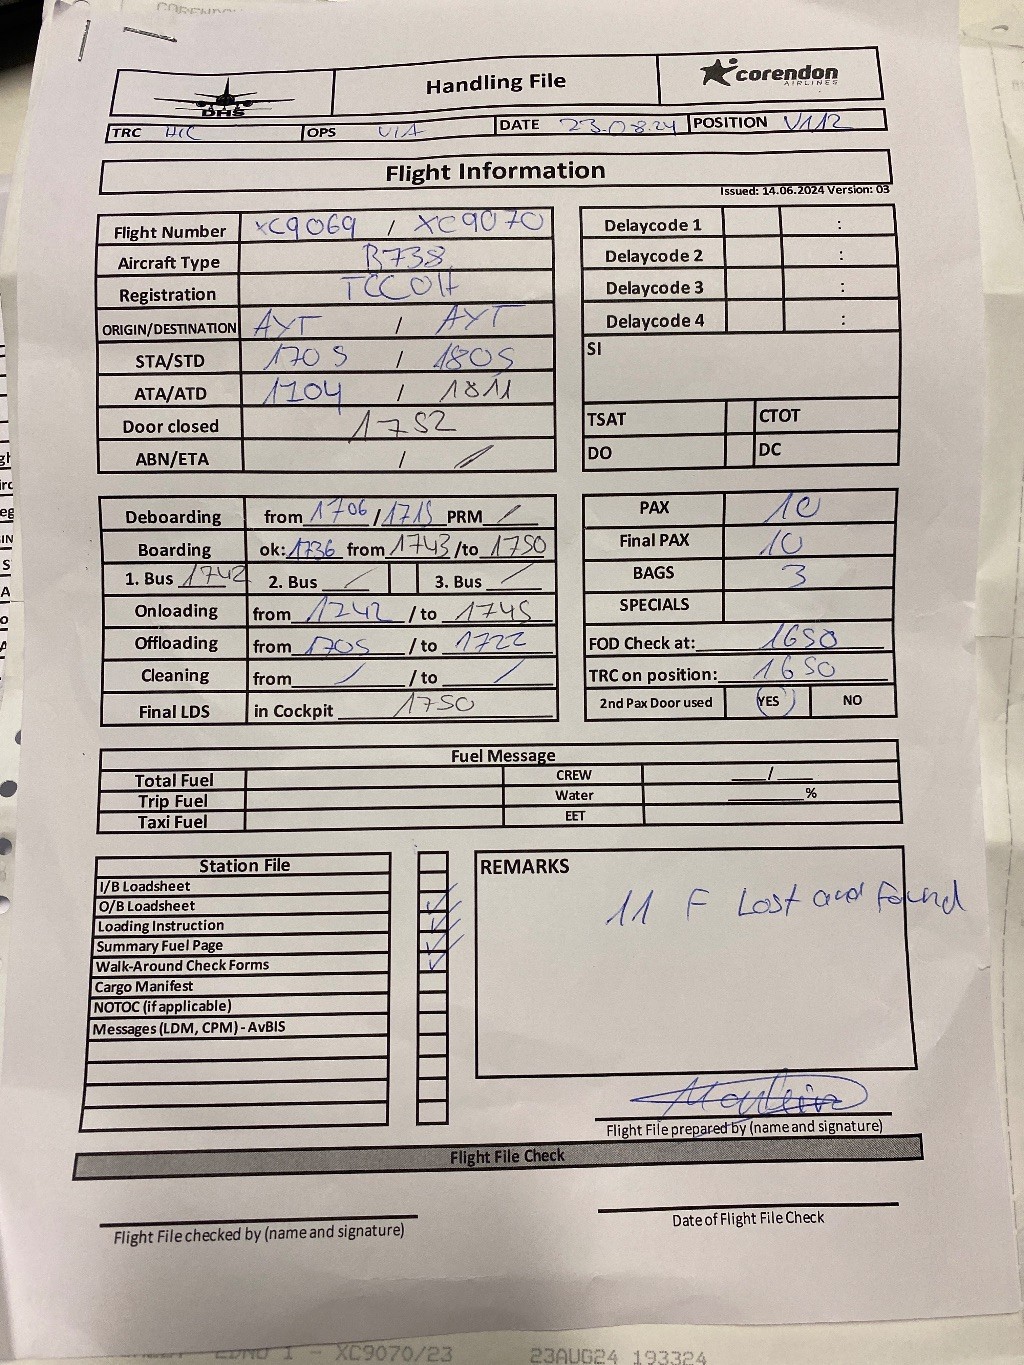 DHS Handling File corendon AIRLINES
TRC HIC OPS VIA DATE 23.08.24 POSITION V112
Flight Information
Issued: 14.06.2024 Version: 03
Flight Number XC9069 / XC9070
Aircraft Type B738
Registration TCCOH
ORIGIN/DESTINATION AYT / AYT
STA/STD 1705 / 1805
ATA/ATD 1704 / 1811
Door closed 1752
ABN/ETA /
Delaycode 1 :
Delaycode 2 :
Delaycode 3 :
Delaycode 4 :
SI
TSAT CTOT
DO DC
Deboarding from 1706 / 1715 PRM /
Boarding ok: 1736 from 1743 /to 1750
1. Bus 1742 2. Bus / 3. Bus /
Onloading from 1742 / to 1745
Offloading from 1705 / to 1722
Cleaning from / / to /
Final LDS in Cockpit 1750
PAX 10
Final PAX 10
BAGS 3
SPECIALS
FOD Check at: 1650
TRC on position: 1650
2nd Pax Door used YES NO
Fuel Message
Total Fuel CREW ___/___
Trip Fuel Water ______%
Taxi Fuel EET
Station File
I/B Loadsheet
O/B Loadsheet
Loading Instruction
Summary Fuel Page
Walk-Around Check Forms
Cargo Manifest
NOTOC (if applicable)
Messages (LDM, CPM) - AvBIS
REMARKS
11 F Lost and Found
Flight File prepared by (name and signature)
Flight File Check
Flight File checked by (name and signature)
Date of Flight File Check
EDNO 1 - XC9070/23 23AUG24 193324